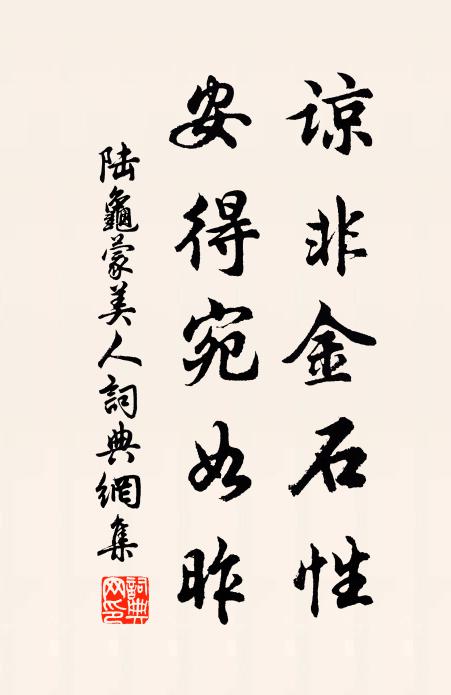 谅非金石性
安得宛如昨
陆龜蒙美人詞典網集
詞典网印